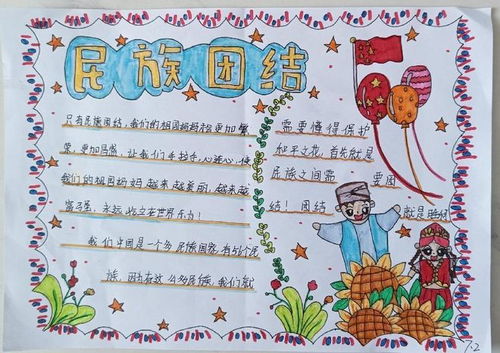 民族团结
只有民族团结，我们的祖国妈妈才能更加繁
荣、更加昌盛，让我们手拉手，心连心，使
我们的祖国妈妈越来越美丽，越来越
富强，永远屹立在世界东方！
我们中国是一个多民族国家，有56个民
族，在这么多民族，我们就
需要懂得保护
和平之花，首先就是
民族之间需要团
结！团结就是
7.2